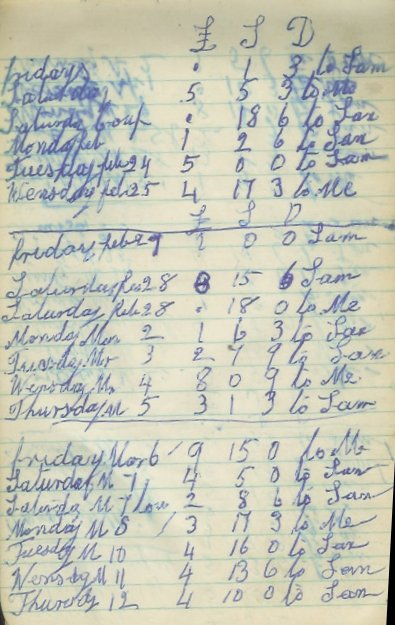 £ S D
Friday . 1 3 to Sam
Saturday 5 5 3 to Me
Saturday . 18 6 to Sam
Monday Feb 1 2 6 to Sam
Tuesday Feb 24 5 0 0 to Sam
Wensday Feb 25 4 17 3 to Me
£ S D
Friday Feb 27 1 0 0 Sam
Saturday Feb 28 15 6 Sam
Saturday Feb 28 . 18 0 to Me
Monday Mar 2 1 6 3 to Sam
Tuesday Mr 3 2 7 9 to Sam
Wensday M 4 8 0 9 to Me
Thursday M 5 3 1 3 to Sam
Friday Mar 6 9 15 0 to Me
Saturday M 7 4 5 0 to Sam
Saturda M 7 2 8 6 to Sam
Monday M 3 17 3 to Me
Tuesdy M 10 4 16 0 to Sam
Wensdy M 11 4 13 6 to Sam
Thursdy 12 4 10 0 to Sam